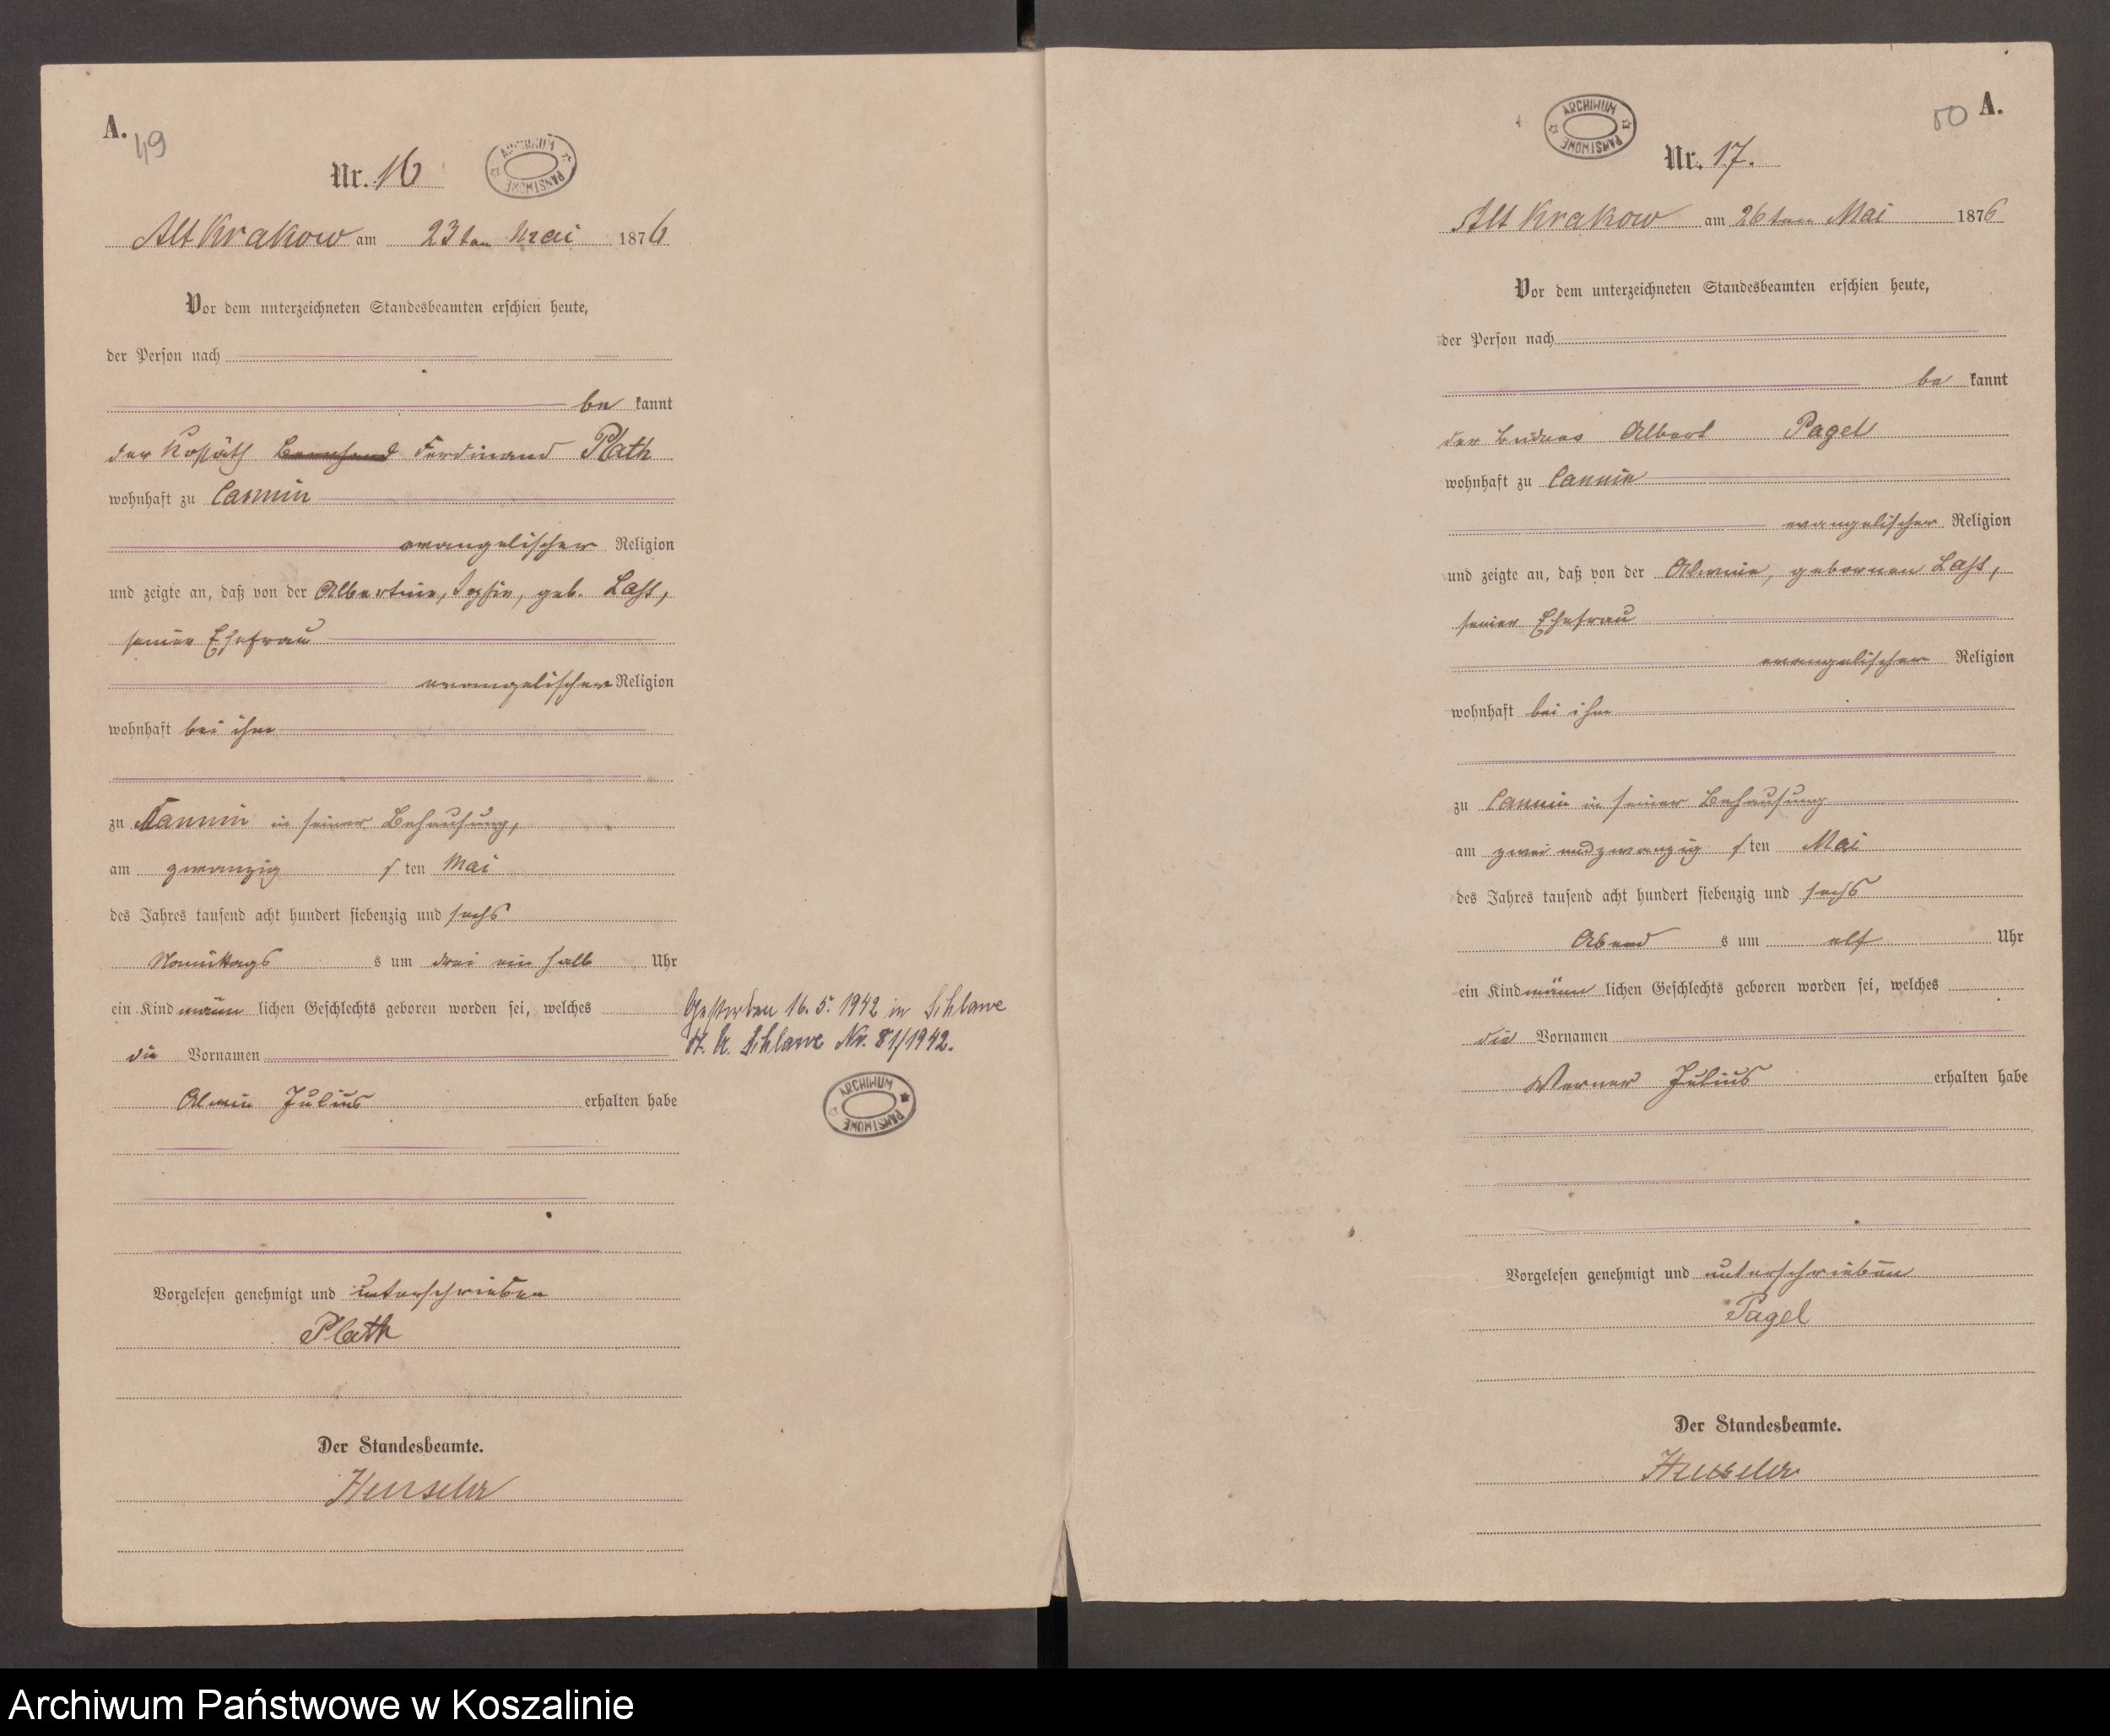 A.
49
ARCHIWUM PAŃSTWOWE
Nr. 16
Alt Krakow am 23ten Mai 1876
Vor dem unterzeichneten Standesbeamten erschien heute,
der Person nach
be kannt
der Kossäth Ferdinand Plath
wohnhaft zu Cannin
evangelischer Religion
und zeigte an, daß von der Albertine, Sophie, geb. Lass,
seiner Ehefrau
evangelischer Religion
wohnhaft bei ihm
zu Cannin in seiner Behausung,
am zwanzig s ten Mai
des Jahres tausend acht hundert siebenzig und sechs
s um drei ein halb Uhr
ein Kind männ lichen Geschlechts geboren worden sei, welches
die Vornamen
Julius erhalten habe
Gestorben 16. 5. 1942 in Schlawe
St. A. Schlawe Nr. 81/1942.
ARCHIWUM PAŃSTWOWE
Vorgelesen genehmigt und unterschrieben
Plath
Der Standesbeamte.
A.
50
ARCHIWUM PAŃSTWOWE
Nr. 17.
Alt Krakow am 26ten Mai 1876
Vor dem unterzeichneten Standesbeamten erschien heute,
der Person nach
be kannt
der Albert Pagel
wohnhaft zu Cannin
evangelischer Religion
und zeigte an, daß von der gebornen Lass,
seiner Ehefrau
evangelischer Religion
wohnhaft bei ihm
zu Cannin in seiner Behausung
am zwei und zwanzig s ten Mai
des Jahres tausend acht hundert siebenzig und sechs
Abend s um elf Uhr
ein Kind männ lichen Geschlechts geboren worden sei, welches
die Vornamen
Werner Julius erhalten habe
Vorgelesen genehmigt und unterschrieben
Pagel
Der Standesbeamte.
Archiwum Państwowe w Koszalinie